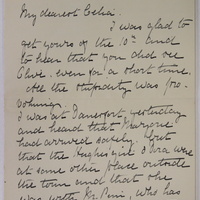 My dearest Celia.
I was glad to
get yours of the 10th and
to hear that you did see
Clive. even for a short time.
All the stupidity was
I was at Davenport, yesterday
and heard that
had arrived safely. but
that the Hughes girl &
at some other place outside
the town and that she
was with Mr. who has